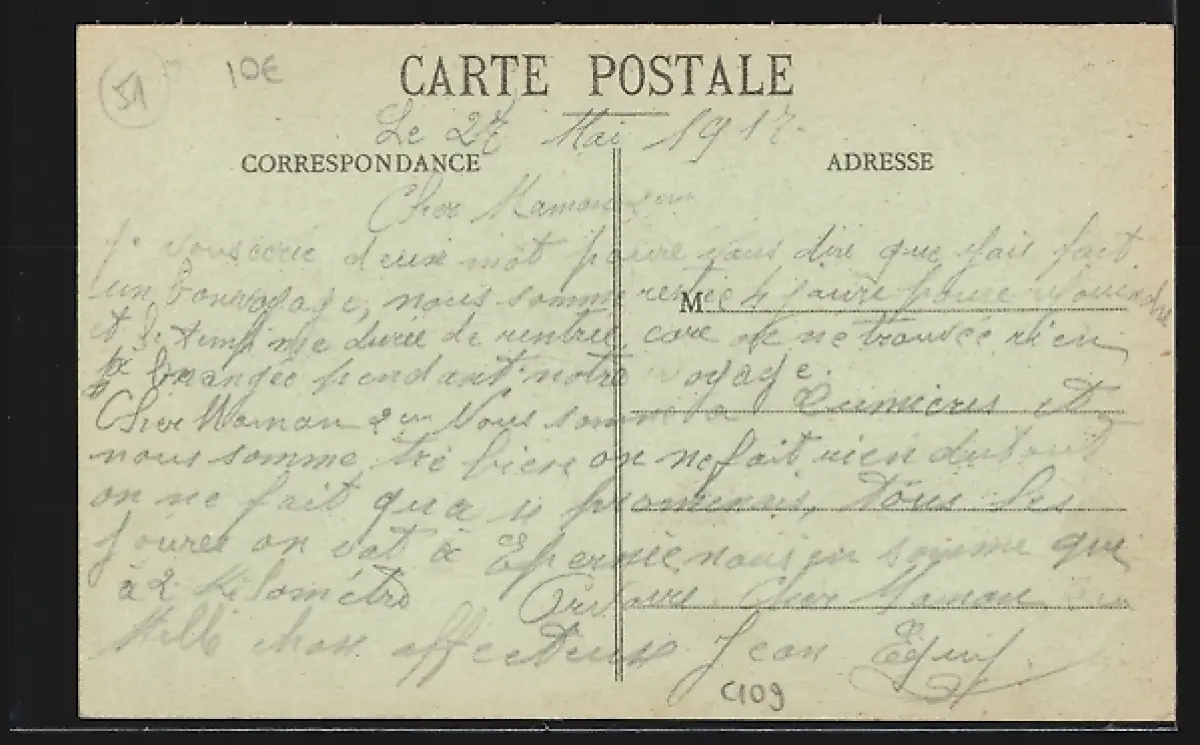 51
10€
CARTE POSTALE
Le 27 Mai 1917.
CORRESPONDANCE
ADRESSE
Cher Maman
Je vous écrie deux mot poure vous dire que jais fait
un bon voyage, nous somme restée 4 joure poure
M
et le temp me durée de rentrée, care on ne trouvée rien
à mangée pendant notre voyage.
Cher Maman Nous somme a Cumieres et
nous somme tré bien on ne fait rien du tout
on ne fait qua se promenais, tous les
joures on vat à Epernie nous en somme que
à 2 Kilométre Cher Maman
Mille chose affectueux Jean
C109